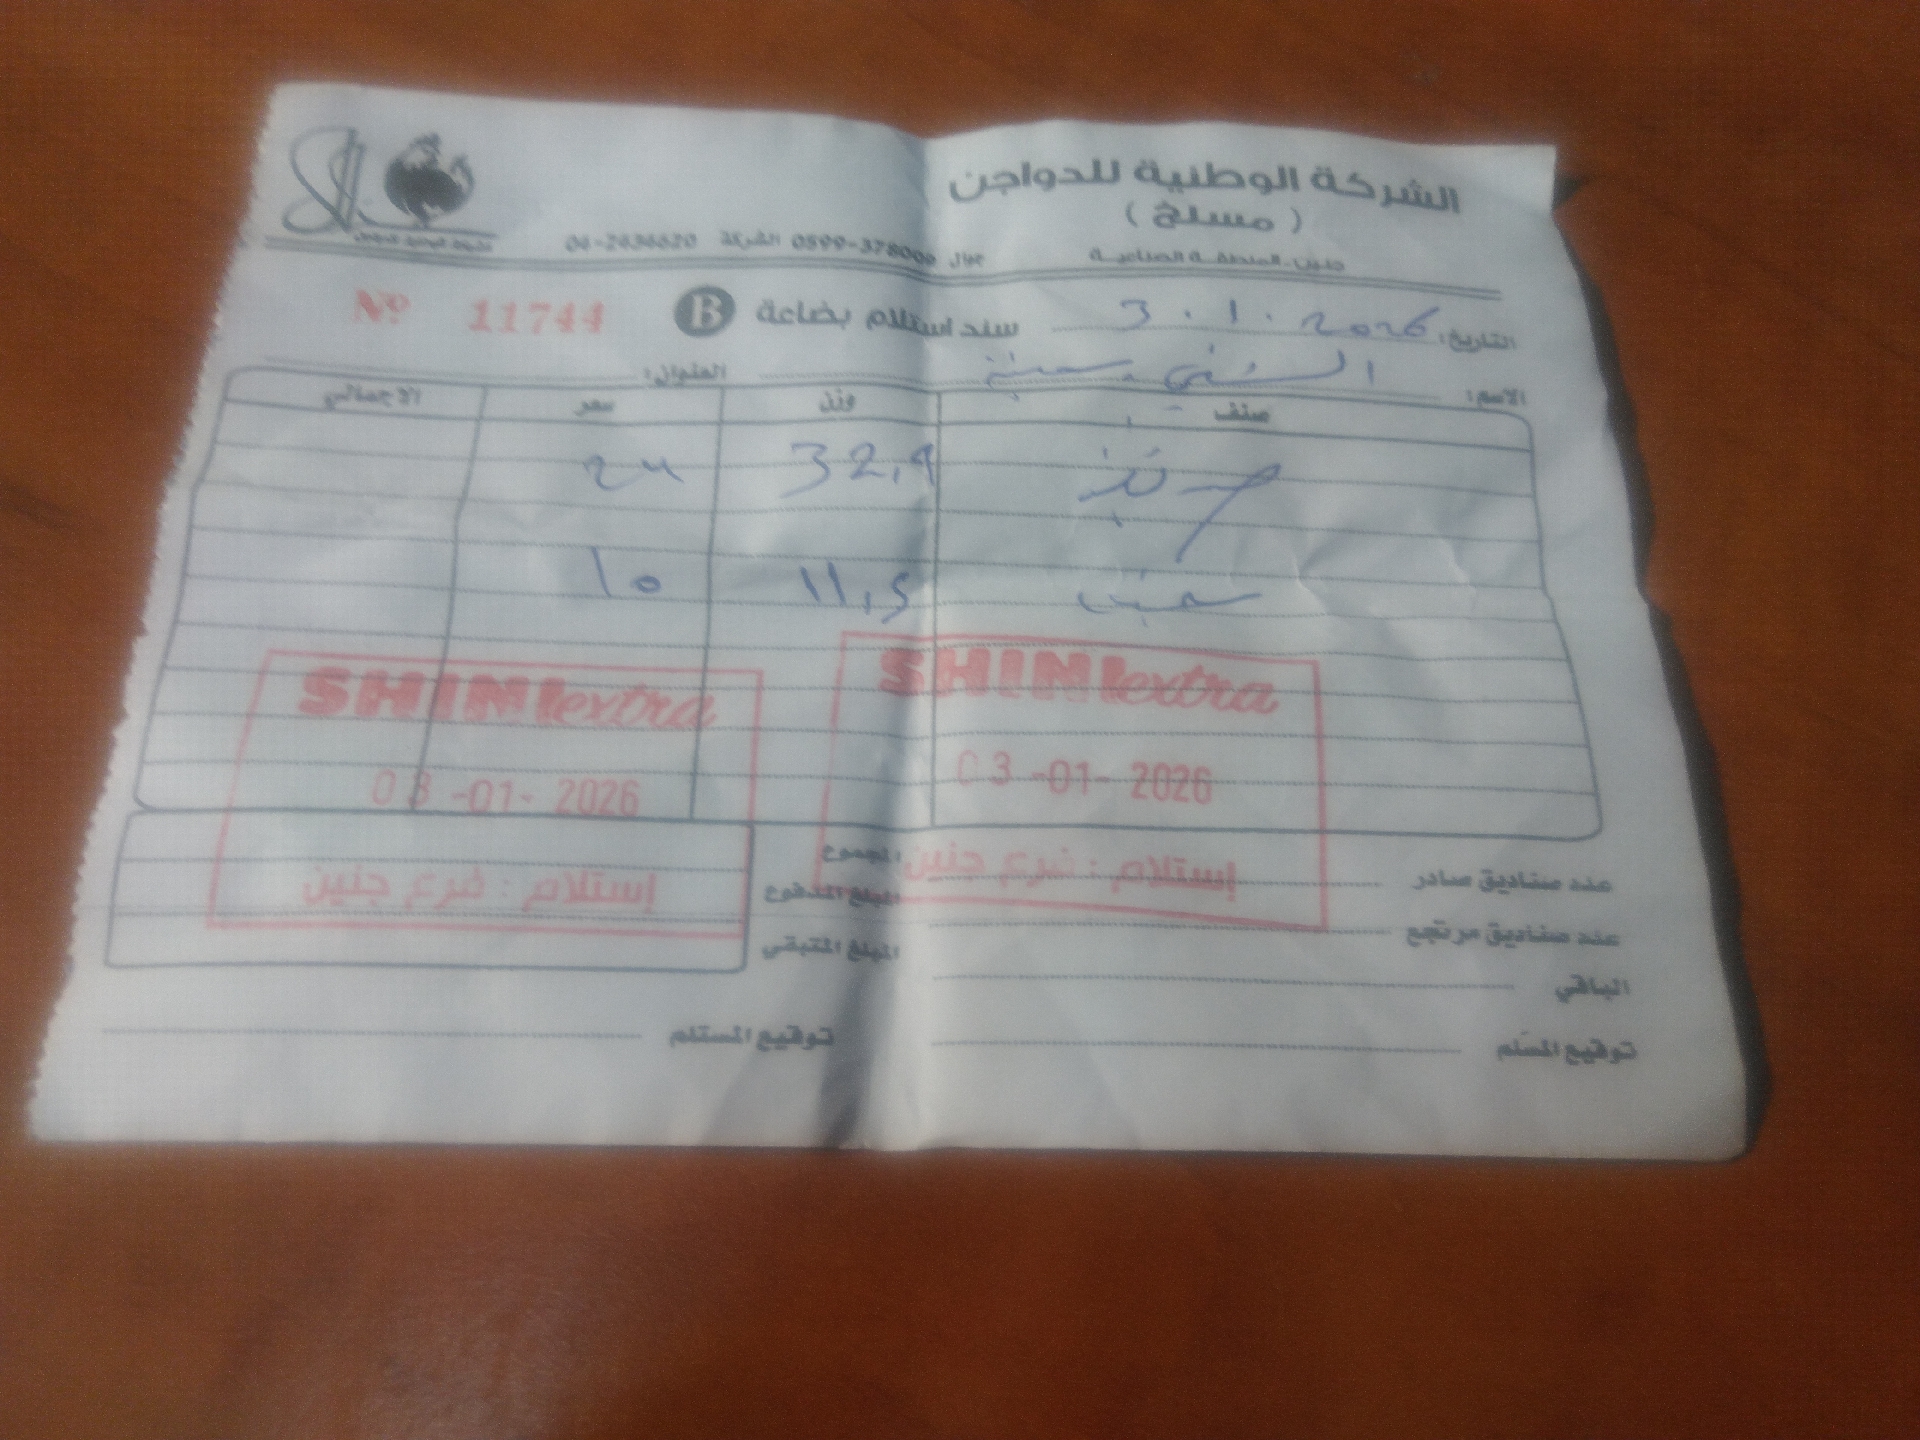 الشركة الوطنية للدواجن
( مسلخ )
جنين-المنطقة الصناعية
جوال 0599-378009 الشركة 04-2436620
التاريخ: 3.1.2026
سند استلام بضاعة B
Nº 11744
الاسم:
العنوان:
صنف وزن سعر الاجمالي
32,9
11,5 10
SHINI extra
03-01-2026
إستلام : فرع جنين
SHINI extra
03-01-2026
إستلام : فرع جنين
المجموع
المبلغ المدفوع
المبلغ المتبقي
عدد صناديق صادر
عدد صناديق مرتجع
الباقي
توقيع المسلم
توقيع المستلم